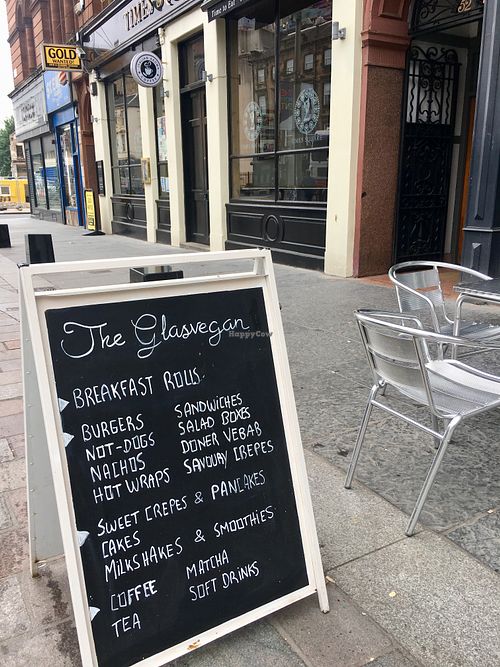 TIMES S
Time to Eat
52
GOLD
WANTED
The Glasvegan
HappyCow
BREAKFAST ROLLS
BURGERS SANDWICHES
NOT-DOGS SALAD BOXES
NACHOS DONER VEBAB
HOT WRAPS SAVOURY CREPES
SWEET CREPES & PANCAKES
CAKES
MILKSHAKES & SMOOTHIES
COFFEE MATCHA
TEA SOFT DRINKS